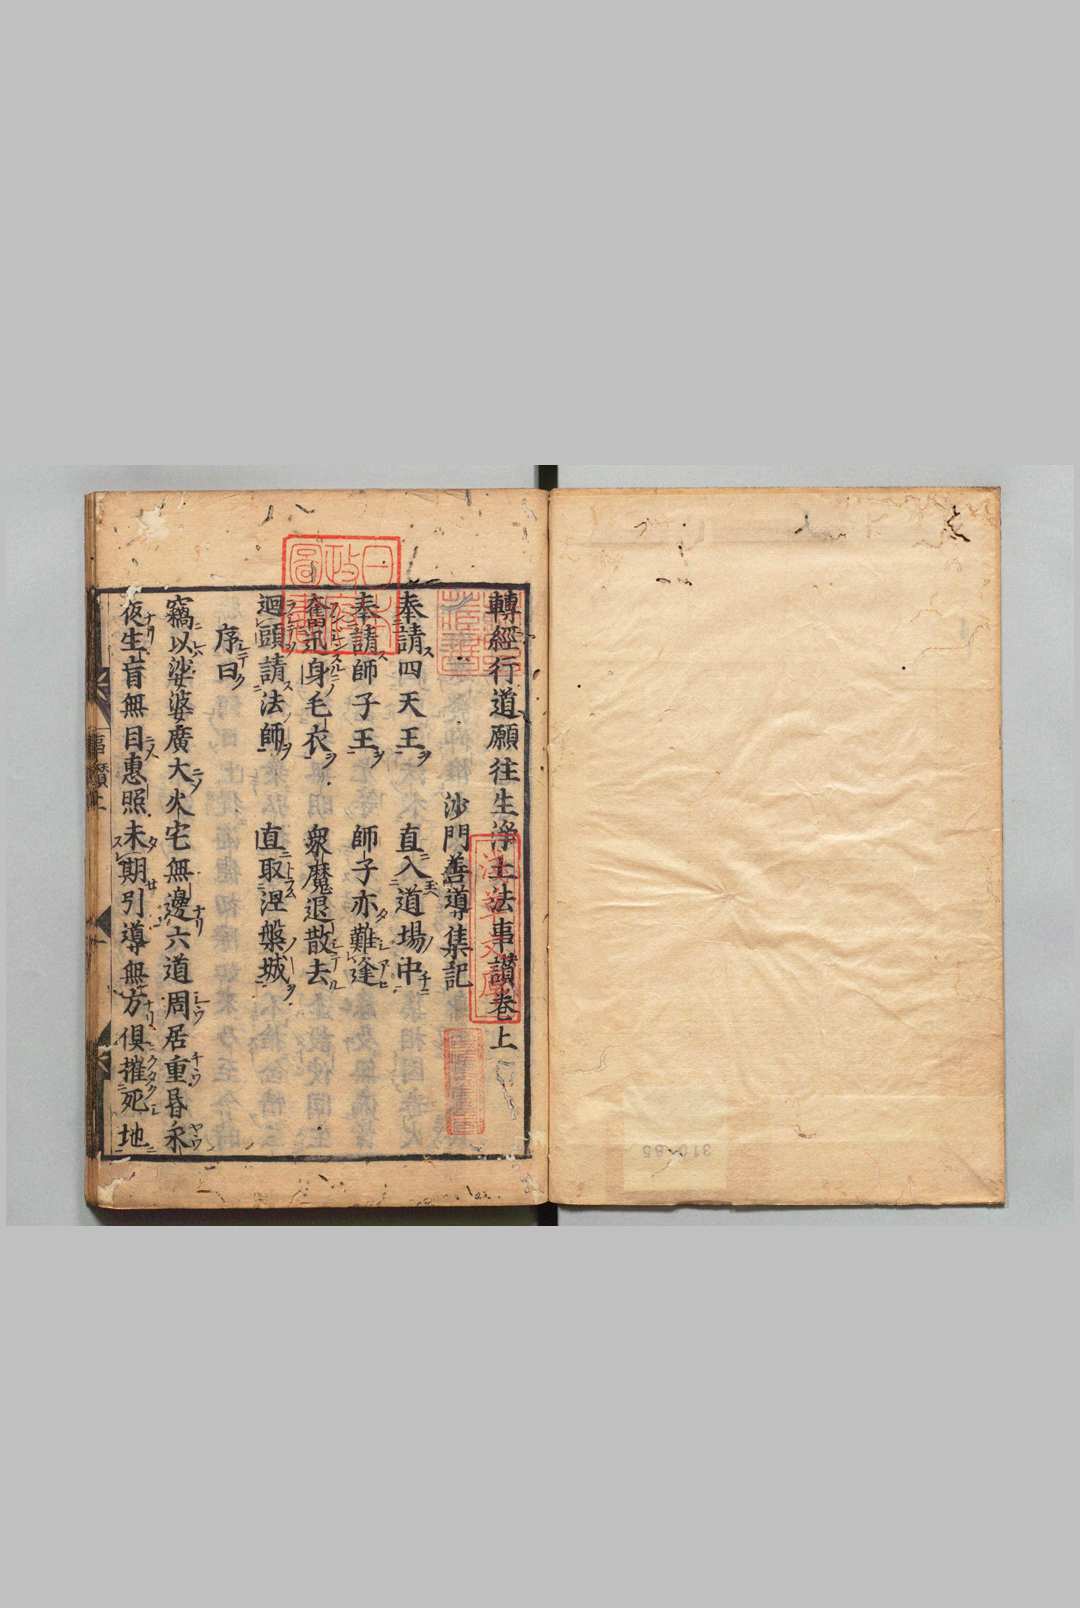 轉經行道願往生淨土法事讃卷上
沙門善導集記
奉請四天王 直入道場中
奉請師子王 師子亦難逢
奮迅身毛衣 衆魔退散去
迴頭請法師 直取涅槃城
序曰
竊以娑婆廣大火宅無邊六道周居重昏永
夜生盲無目惠照未期引導無方俱摧死地
事讃上
日本
政府
圖書
淺草文庫